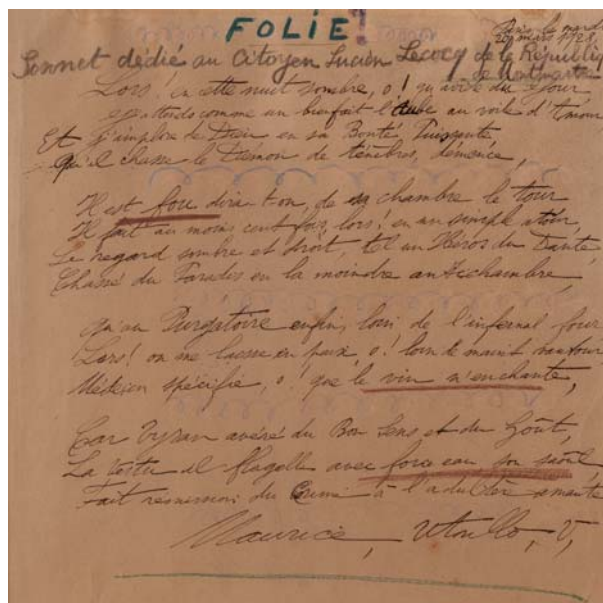 FOLIE!
Paris, le mardi
20 mars 1928,
Sonnet dédié au Citoyen Lucien Lecocq de la République
de Montmartre
Lors! en cette nuit sombre, o! qu'avide du jour
j'attends comme un bienfait l'Aube au voile d'Amour,
Et j'implore de Dieu en sa Bonté Puissante
Qu'il chasse le Démon de ténèbres, démence,
Il est fou dira-ton, de sa chambre le tour
Il fait au moins cent fois, lors! en un simple atour,
Le regard sombre et droit, tel un Héros du Dante,
Chassé du Paradis en la moindre antichambre,
Qu'au Purgatoire enfin, loin de l'infernal four
Lors! on me laisse en paix, o! loin de maint vautour
Médecin spécifie, o! que le vin m'enchante,
Car Tyran avéré du Bon Sens et du Goût,
La Vertu il flagelle avec force eau son saoûl
Fait rémission du Crime à l'adultère amante
Maurice, Utrillo, V,